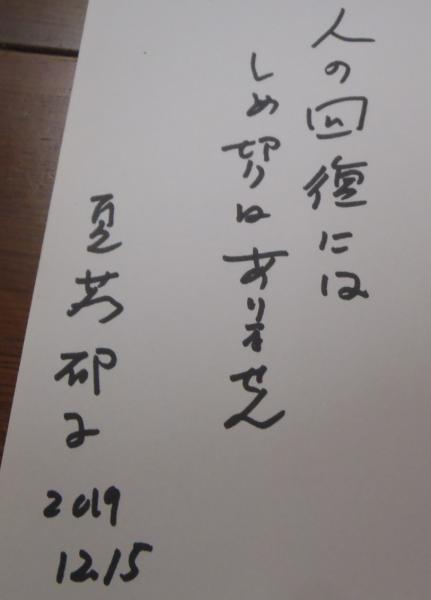 人の回復には
しめ切りはありません
夏苅郁子
2019
12.15